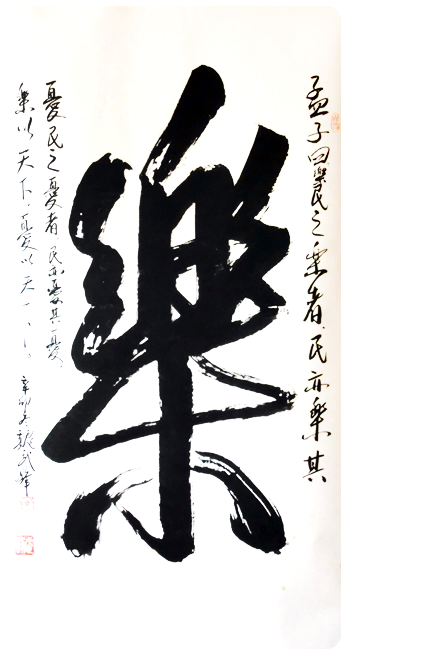 孟子曰樂民之樂者民亦樂其
樂
憂民之憂者民亦憂其憂
樂以天下憂以天下
辛卯冬